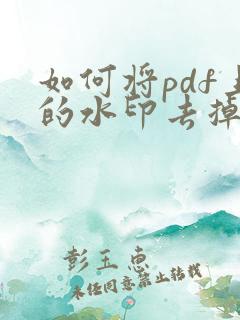 如何将pdf上
的水印去掉
彭玉惠
未经同意禁止转载